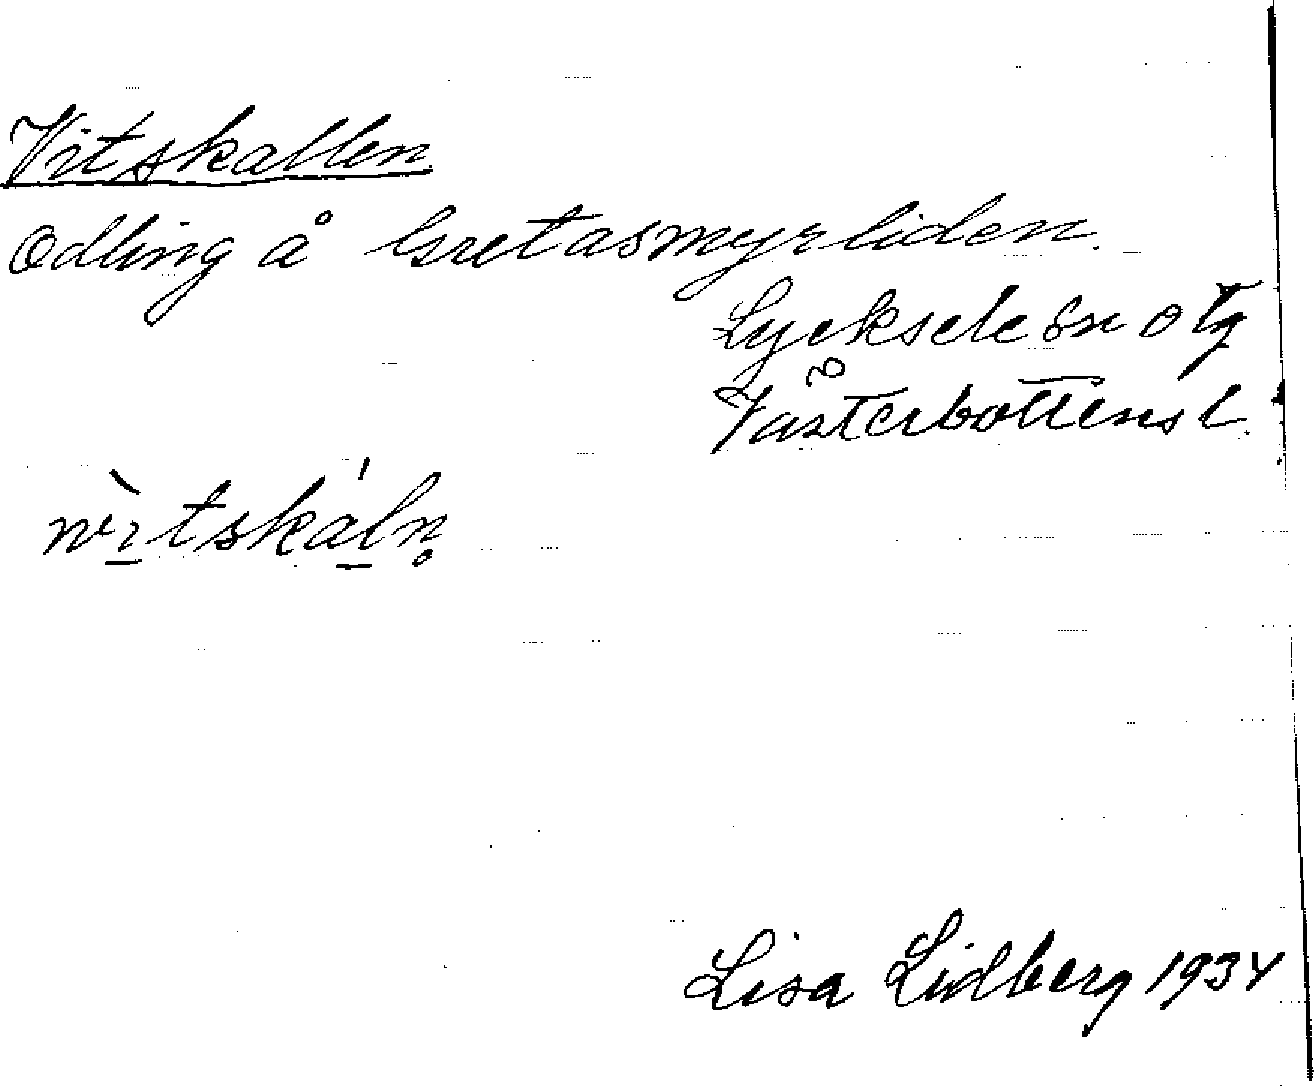 Vitskallen
Odling å Gretasmyrliden.
Lycksele sn o tg
Västerbottens l.
Lisa Lidberg 1934